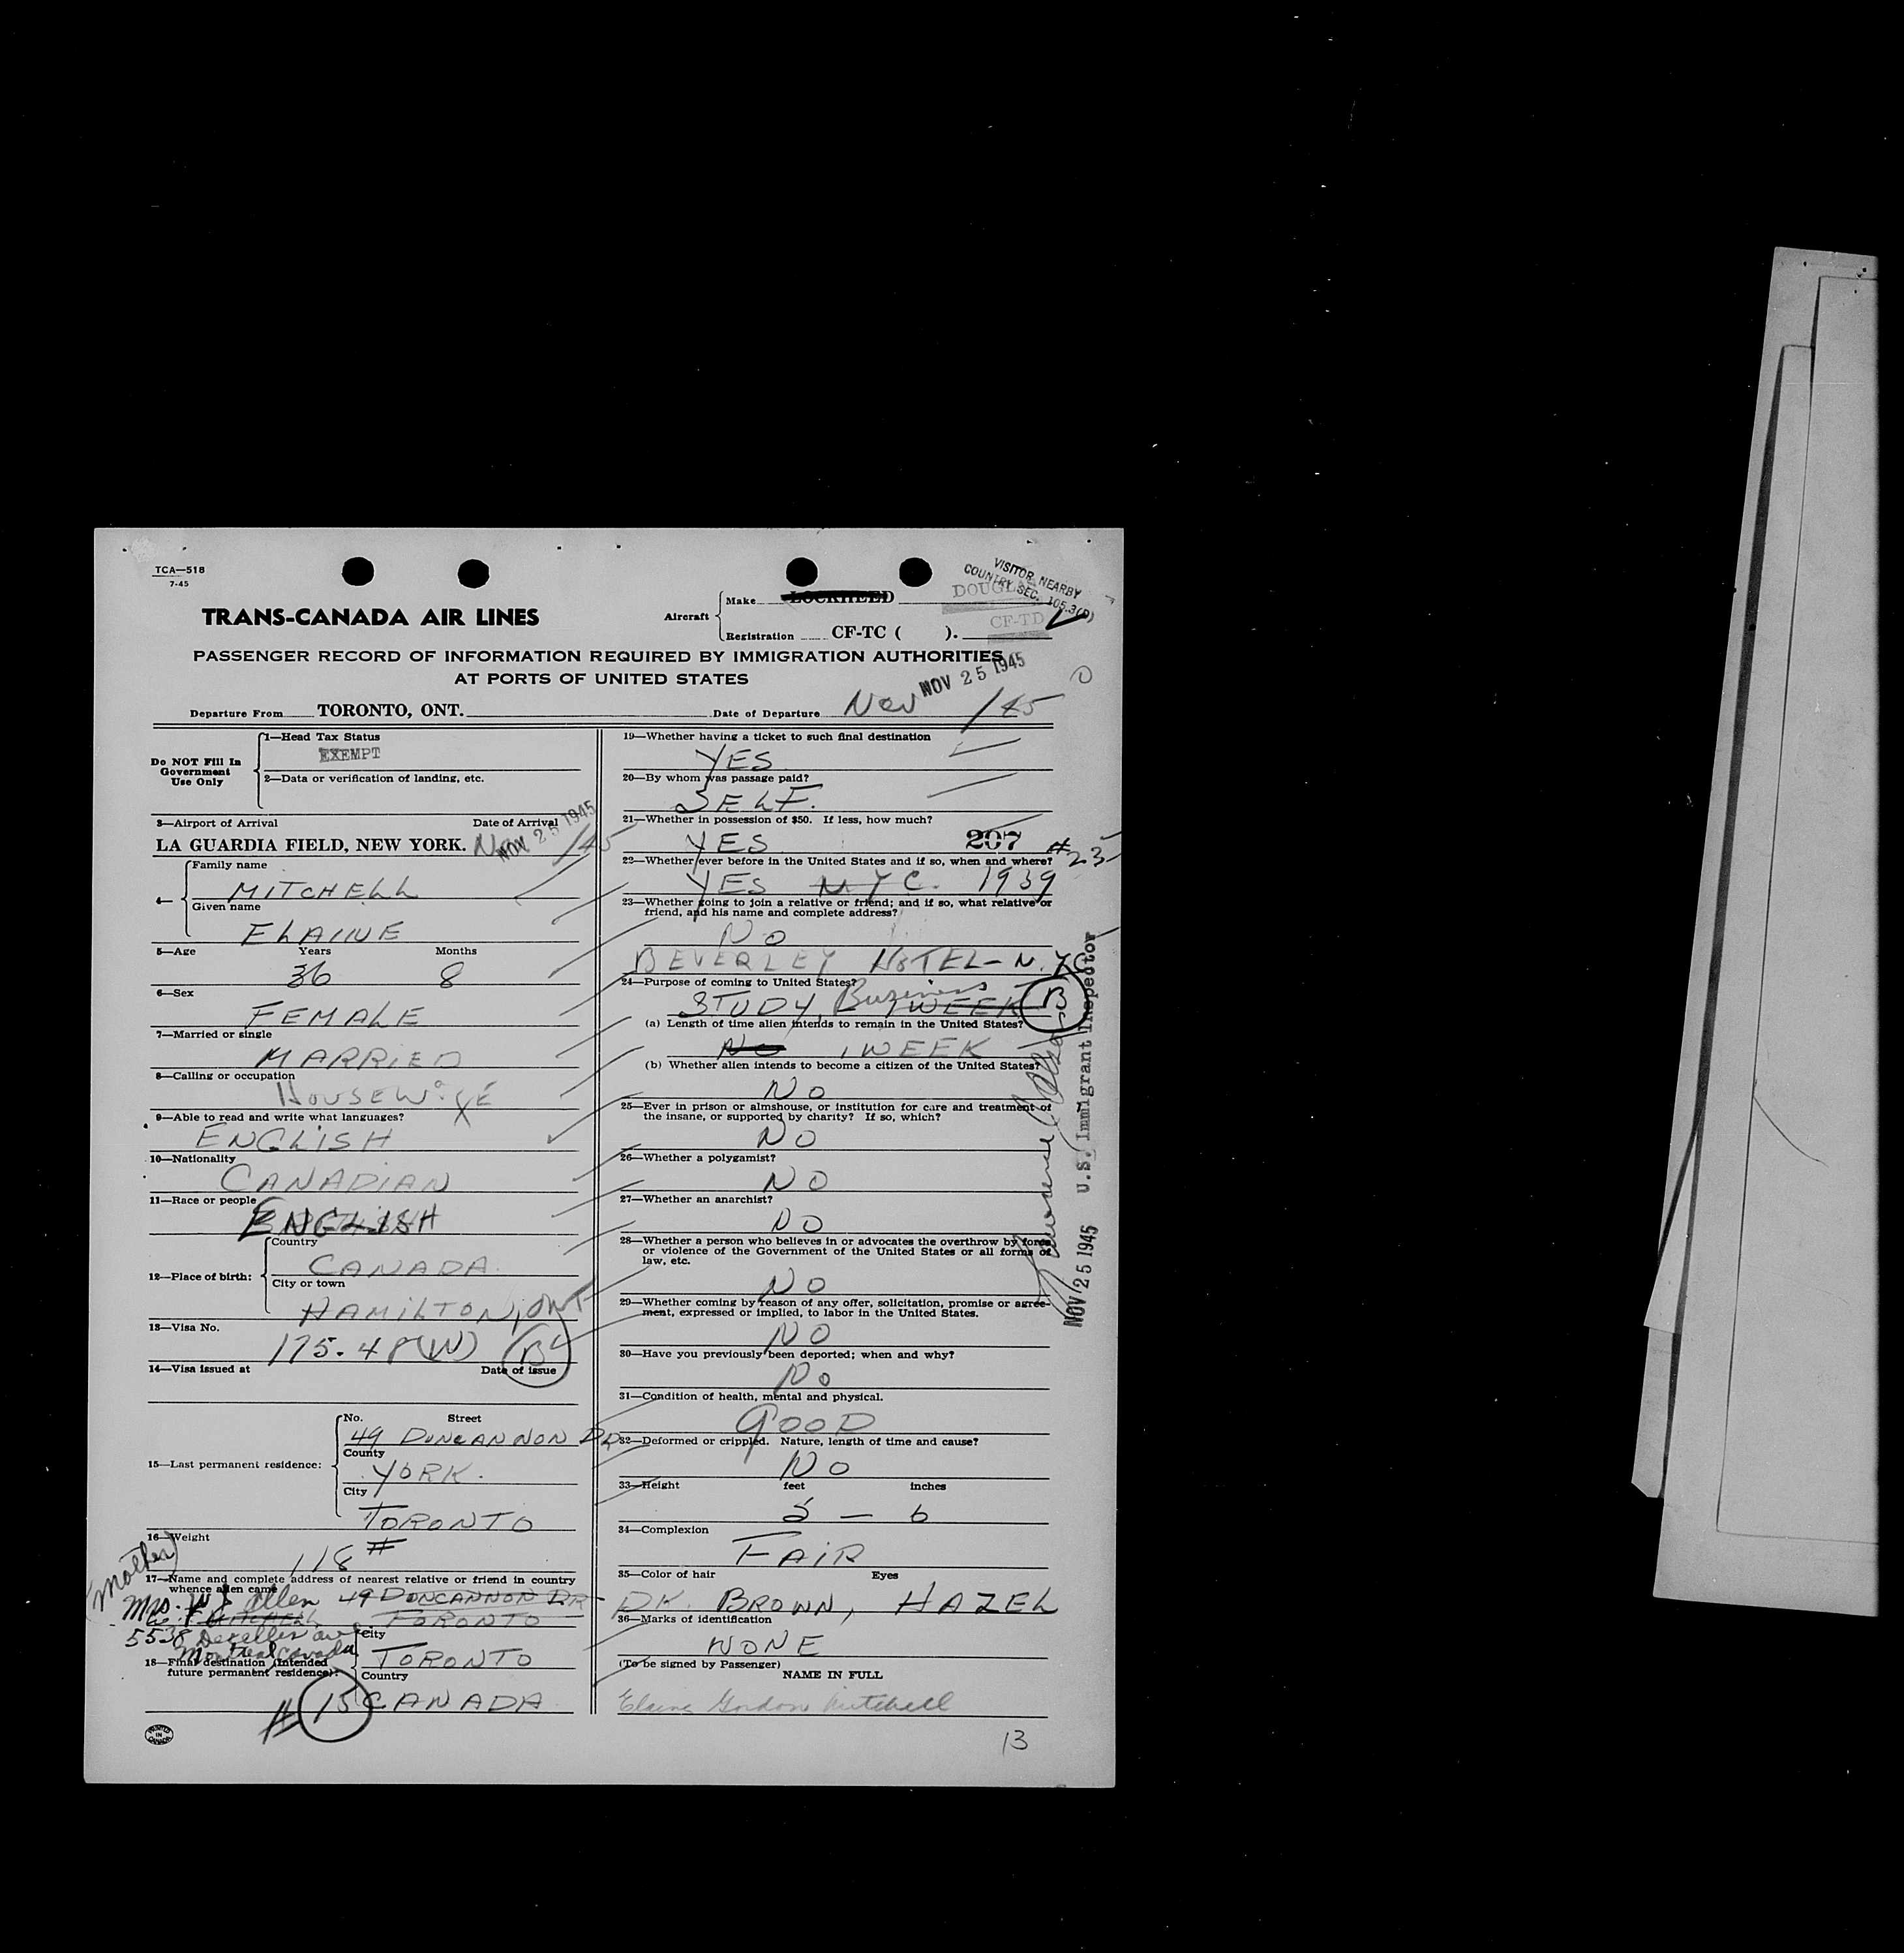 TCA—518
7-45
VISITOR NEARBY
COUNTRY SEC. 105.3(D)
TRANS-CANADA AIR LINES
Aircraft
Make LOCKHEED
Registration CF-TC ( ). CF-TD
PASSENGER RECORD OF INFORMATION REQUIRED BY IMMIGRATION AUTHORITIES
AT PORTS OF UNITED STATES
NOV 25 1945
Departure From TORONTO, ONT. Date of Departure Nov /45
Do NOT Fill In
Government
Use Only
1—Head Tax Status
EXEMPT
2—Data or verification of landing, etc.
3—Airport of Arrival Date of Arrival
LA GUARDIA FIELD, NEW YORK. NOV 25 1945 /45
4—
Family name
MITCHELL
Given name
ELAINE
5—Age Years Months
36 8
6—Sex
FEMALE
7—Married or single
MARRIED
8—Calling or occupation
HOUSEWIFE
9—Able to read and write what languages?
ENGLISH
10—Nationality
CANADIAN
11—Race or people
ENGLISH
12—Place of birth:
Country
CANADA
City or town
HAMILTON, ONT
13—Visa No.
175.48(W) B
14—Visa issued at Date of issue
15—Last permanent residence:
No. Street
49 DUNCANNON DR
County
YORK.
City
TORONTO
16—Weight
118 #
(Mother)
17—Name and complete address of nearest relative or friend in country
whence alien came
Mrs. Allen 49 DUNCANNON DR
MITCHELL TORONTO
5538
Montreal Canada
City
TORONTO
18—Final destination (Intended
future permanent residence):
Country
# 15 CANADA
PRINTED
IN
CANADA
19—Whether having a ticket to such final destination
YES
20—By whom was passage paid?
SELF.
21—Whether in possession of $50. If less, how much?
YES 207 #23
22—Whether ever before in the United States and if so, when and where?
YES NYC. 1939
23—Whether going to join a relative or friend; and if so, what relative or
friend, and his name and complete address?
NO
BEVERLEY HOTEL - N.YC
24—Purpose of coming to United States?
STUDY, Business 1 WEEK B
(a) Length of time alien intends to remain in the United States?
NO 1 WEEK
(b) Whether alien intends to become a citizen of the United States?
NO
25—Ever in prison or almshouse, or institution for care and treatment of
the insane, or supported by charity? If so, which?
NO
26—Whether a polygamist?
NO
27—Whether an anarchist?
NO
28—Whether a person who believes in or advocates the overthrow by force
or violence of the Government of the United States or all forms of
law, etc.
NO
29—Whether coming by reason of any offer, solicitation, promise or agree-
ment, expressed or implied, to labor in the United States.
NO
30—Have you previously been deported; when and why?
No
31—Condition of health, mental and physical.
GOOD
32—Deformed or crippled. Nature, length of time and cause?
NO
33—Height feet inches
5 — 6
34—Complexion
FAIR
35—Color of hair Eyes
DK. BROWN, HAZEL
36—Marks of identification
NONE
(To be signed by Passenger)
NAME IN FULL
Elaine Gordon Mitchell
13
NOV 25 1945 U.S. Immigrant Inspector